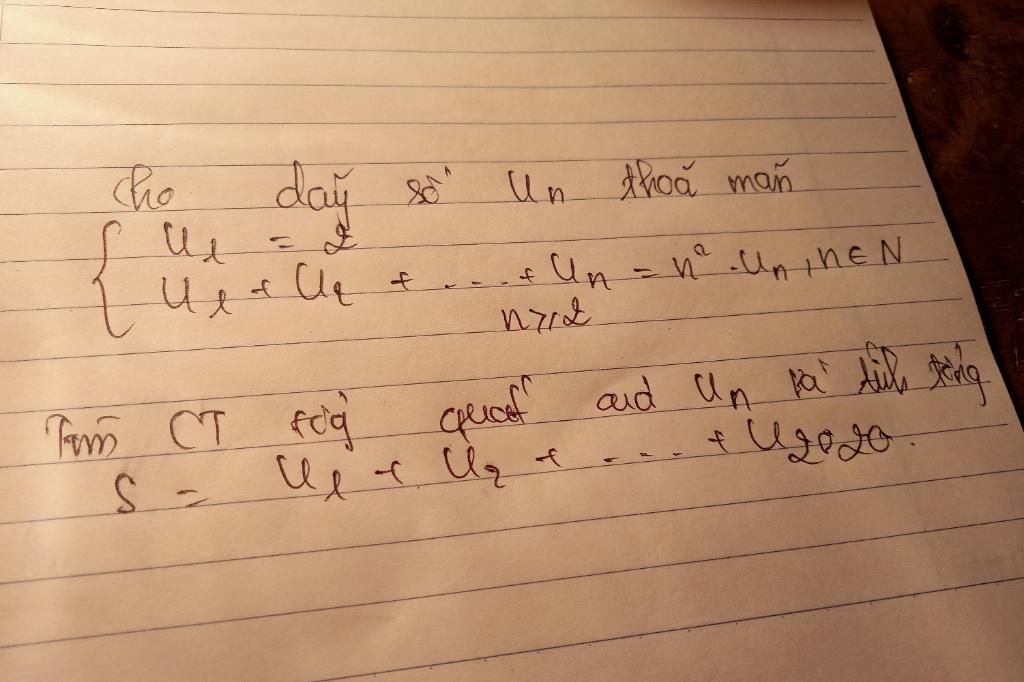 Cho dãy số Un thoã mãn
U1 = 2
U1 + U2 + .... + Un = n² . Un , n ∈ N
n ≥ 2
Tìm CT tổng quát của Un và tính tổng
S = U1 + U2 + .... + U2020.